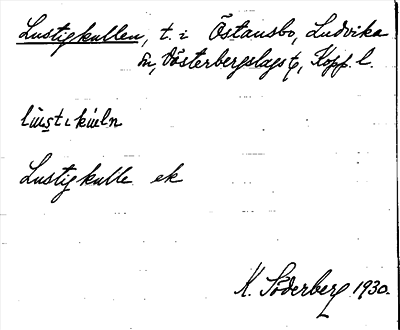 Lustigkullen, t. i Östansbo, Ludvika
sn, Västerbergslags tg, Kopp. l.
Lustigkulle ek
K. Söderberg 1930.